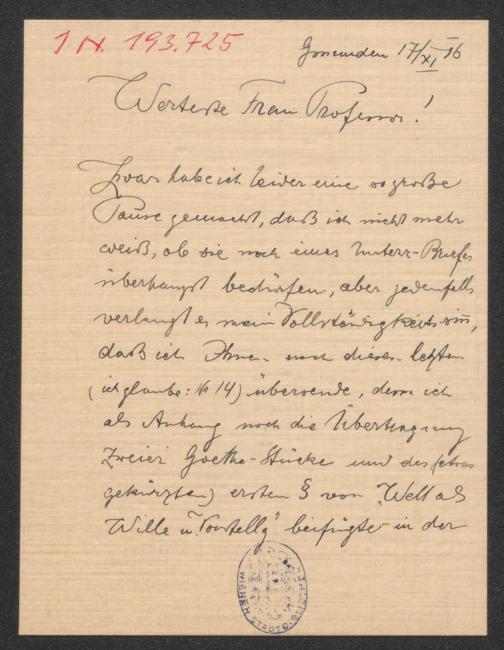 I.N. 193.725
Gmunden 17/XI 16
Werteste Frau Professor!
Zwar habe ich leider eine so große
Pause gemacht, daß ich nicht mehr
weiß, ob sie noch eines Unterr-Briefes
überhaupt bedürfen, aber jedenfalls
verlangt es mein Vollständigkeitssinn,
daß ich Ihnen noch diesen letzten
(ich glaube: № 14) übersende, dem ich
als Anhang noch die Übertragung
zweier Goethe-Stücke und des (etwas
gekürzten) ersten § von "Welt als
Wille u. Vorstellg" beifügte in der
WIENER STADTBIBLIOTHEK